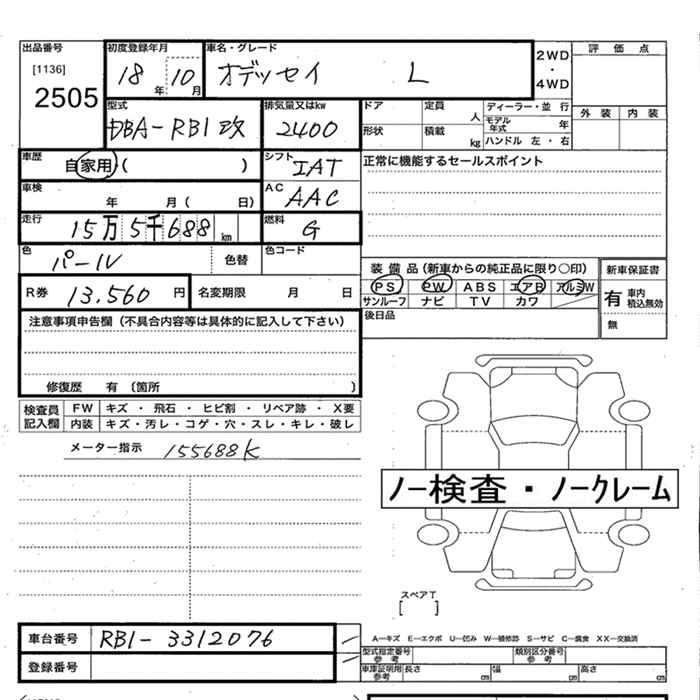 出品番号 初度登録年月 車名・グレード 2WD・4WD 評価点
[1136] 18年 10月 オデッセイ L
2505
型式 排気量又はkw ドア 定員 人 ディーラー・並行 外装 内装
DBA-RB1改 2400 形状 積載 kg モデル年式 年
ハンドル 左・右
車歴 自家用 ( ) シフト IAT 正常に機能するセールスポイント
車検 年 月( 日) AC AAC
走行 15万5千688km 燃料 G
色 パール 色替 色コード
装備品(新車からの純正品に限り○印) 新車保証書
R券 13,560円 名変期限 月 日 PS PW ABS エアB アルミW 有 車内積込無効
サンルーフ ナビ TV カワ 無
注意事項申告欄(不具合内容等は具体的に記入して下さい) 後日品
修復歴 有 (箇所 )
検査員記入欄 FW キズ・飛石・ヒビ割・リペア跡・X要
内装 キズ・汚レ・コゲ・穴・スレ・キレ・破レ
メーター指示 155688K
ノー検査・ノークレーム
スペアT
[ ]
車台番号 RB1-3312076 A―キズ E―エクボ U―凹み W―補修跡 S―サビ C―腐食 XX―交換済
登録番号 型式指定番号参考 類別区分番号参考
車庫証明用参考 長さ cm 幅 cm 高さ cm